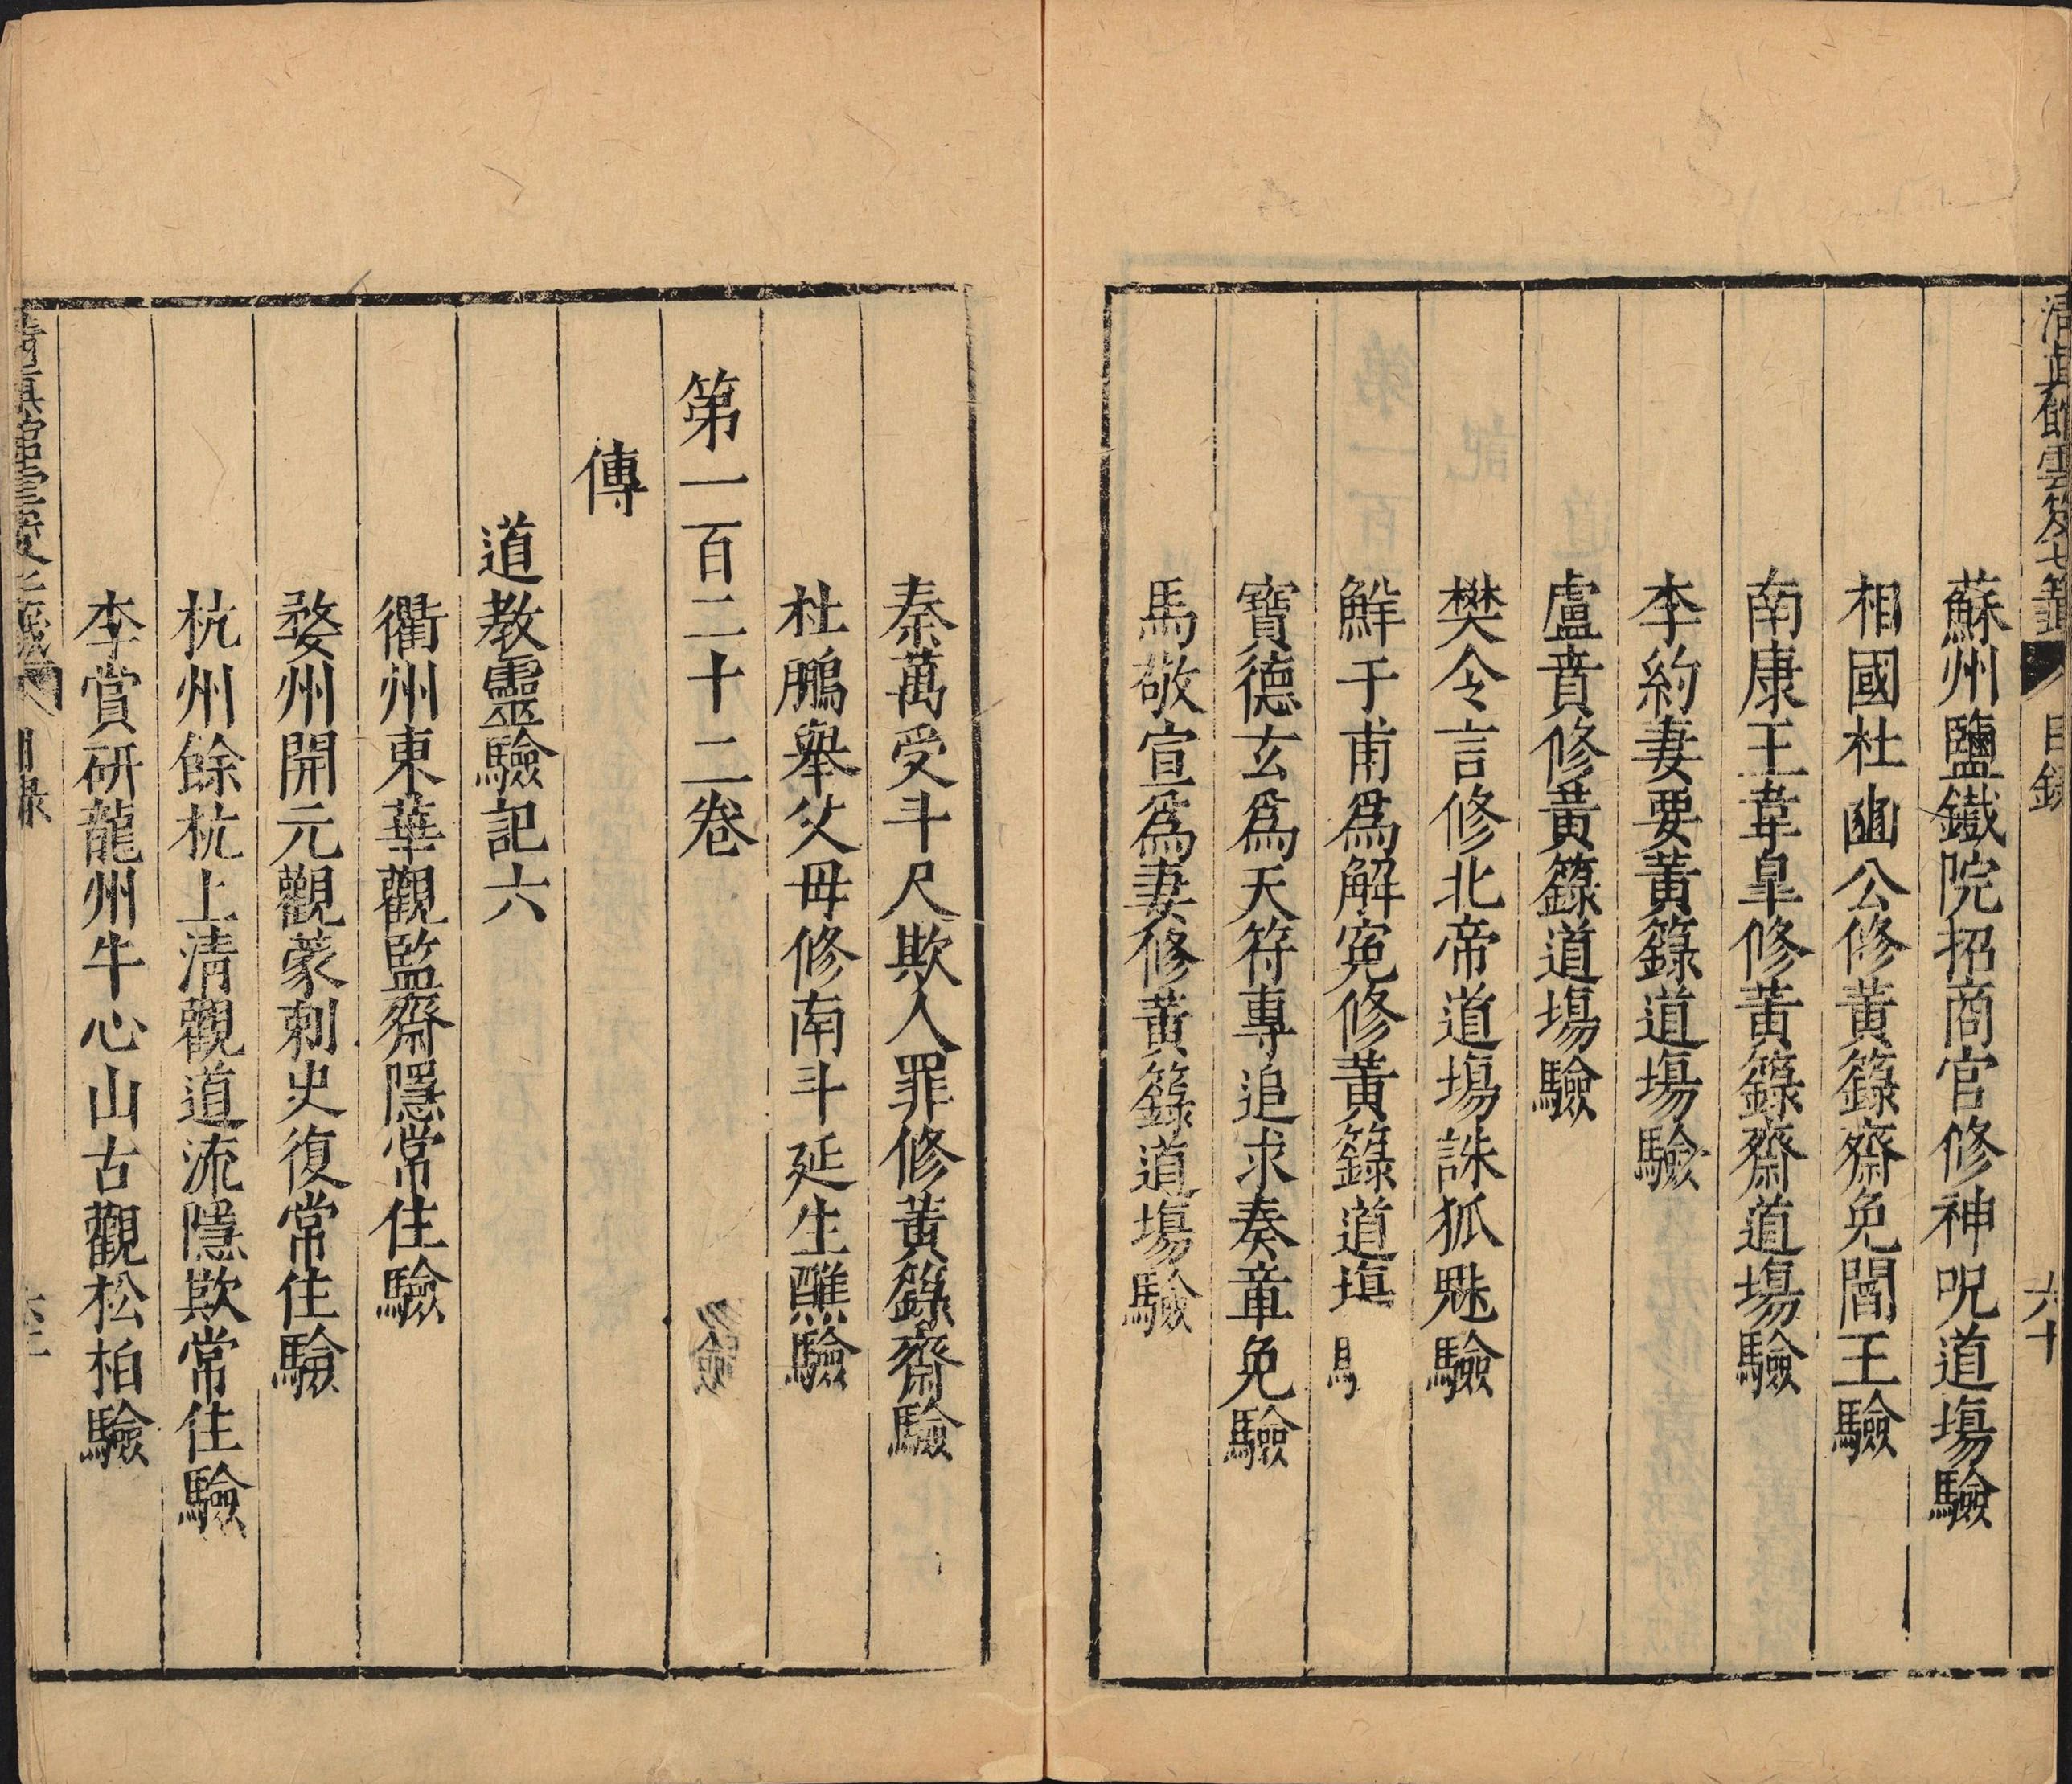 蘇州鹽鐵院招商官修神呪道塲驗
相國杜豳公修黃籙齋免閻王驗
南康王韋皐修黃籙齋道塲驗
李約妻要黃籙道塲驗
盧賁修黃籙道塲驗
樊令言修北帝道塲誅狐魅驗
鮮于甫爲解寃修黃籙道塲
寶德玄爲天符專追求奏章免驗
馬敬宣爲妻修黃籙道塲驗
秦萬受斗尺欺人罪修黃籙齋驗
杜鵬舉父母修南斗延生醮驗
第一百二十二卷
傳
道教靈驗記六
衢州東華觀監齋隱常住驗
婺州開元觀蒙刺史復常住驗
杭州餘杭上清觀道流隱欺常住驗
李賞研龍州牛心山古觀松柏驗